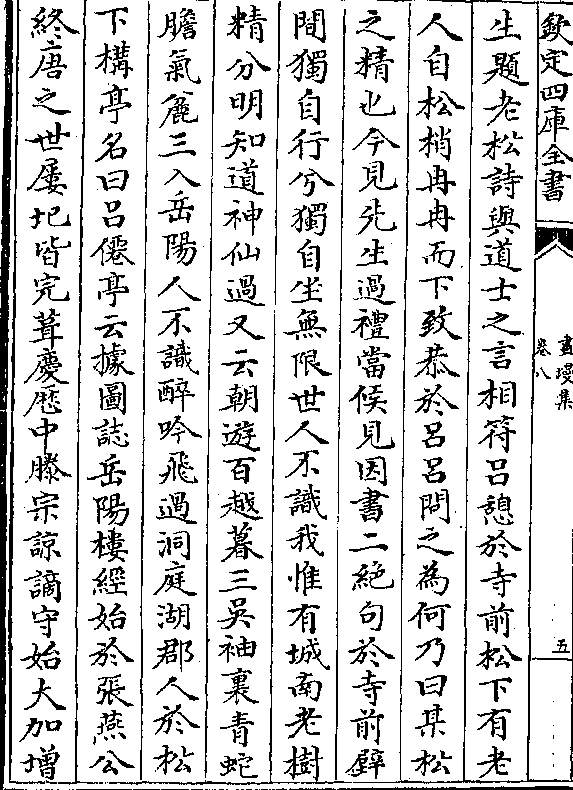 欽定四庫全書
畫墁集
卷八
五
生題老松詩與道士之言相符呂憩於寺前松下有老
人自松梢冉冉而下致恭於呂呂問之為何乃曰某松
之精也今見先生過禮當候見因書二絶句於寺前壁
間獨自行兮獨自坐無限世人不識我惟有城南老樹
精分明知道神仙過又云朝遊百越暮三吳袖裏青蛇
膽氣麄三入岳陽人不識醉吟飛過洞庭湖郡人於松
下構亭名曰呂僊亭云據圖誌岳陽樓經始於張燕公
終唐之世屢圮皆完葺慶厯中滕宗諒謫守始大加增